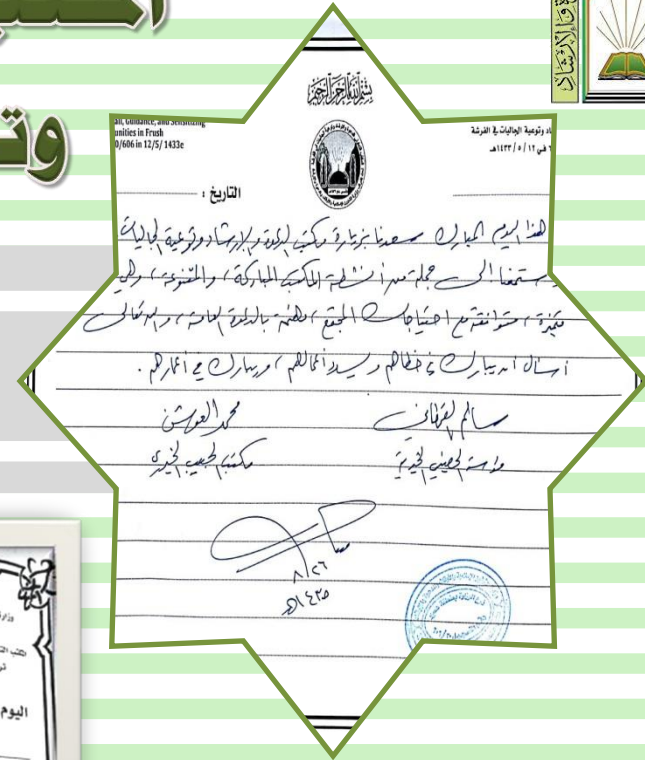 وت
بسم الله الرحمن الرحيم
Guidance, and Sensitizing
unities in Frush
0/606 in 12/5/ 1433e
وتوعية الجاليات في الفرشة
في ١٢ / ٥ / ١٤٣٣هـ
التاريخ :
لهذا اليوم المبارك سعدنا بزيارة مكتب الدعوة والإرشاد وتوعية الجاليات
واستمعنا إلى جملة من أنشطة المكتب المباركة، والمتنوعة، وهي
متميزة، متوافقة مع احتياجات المجتمع، بالدعوة العامة، والله تعالى
أسأل أن يبارك في خطاهم ويسدد أعمالهم، ويبارك في أعمارهم.
سالم القحطاني
محمد العوشن
الحصيني الخيرية
مكتب الحبيب الخيري
٨/٢٦
١٤٣٥هـ
اليوم